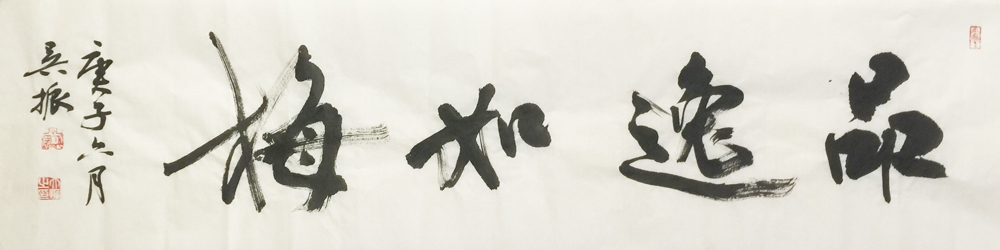 品逸如梅
庚子六月
吴振